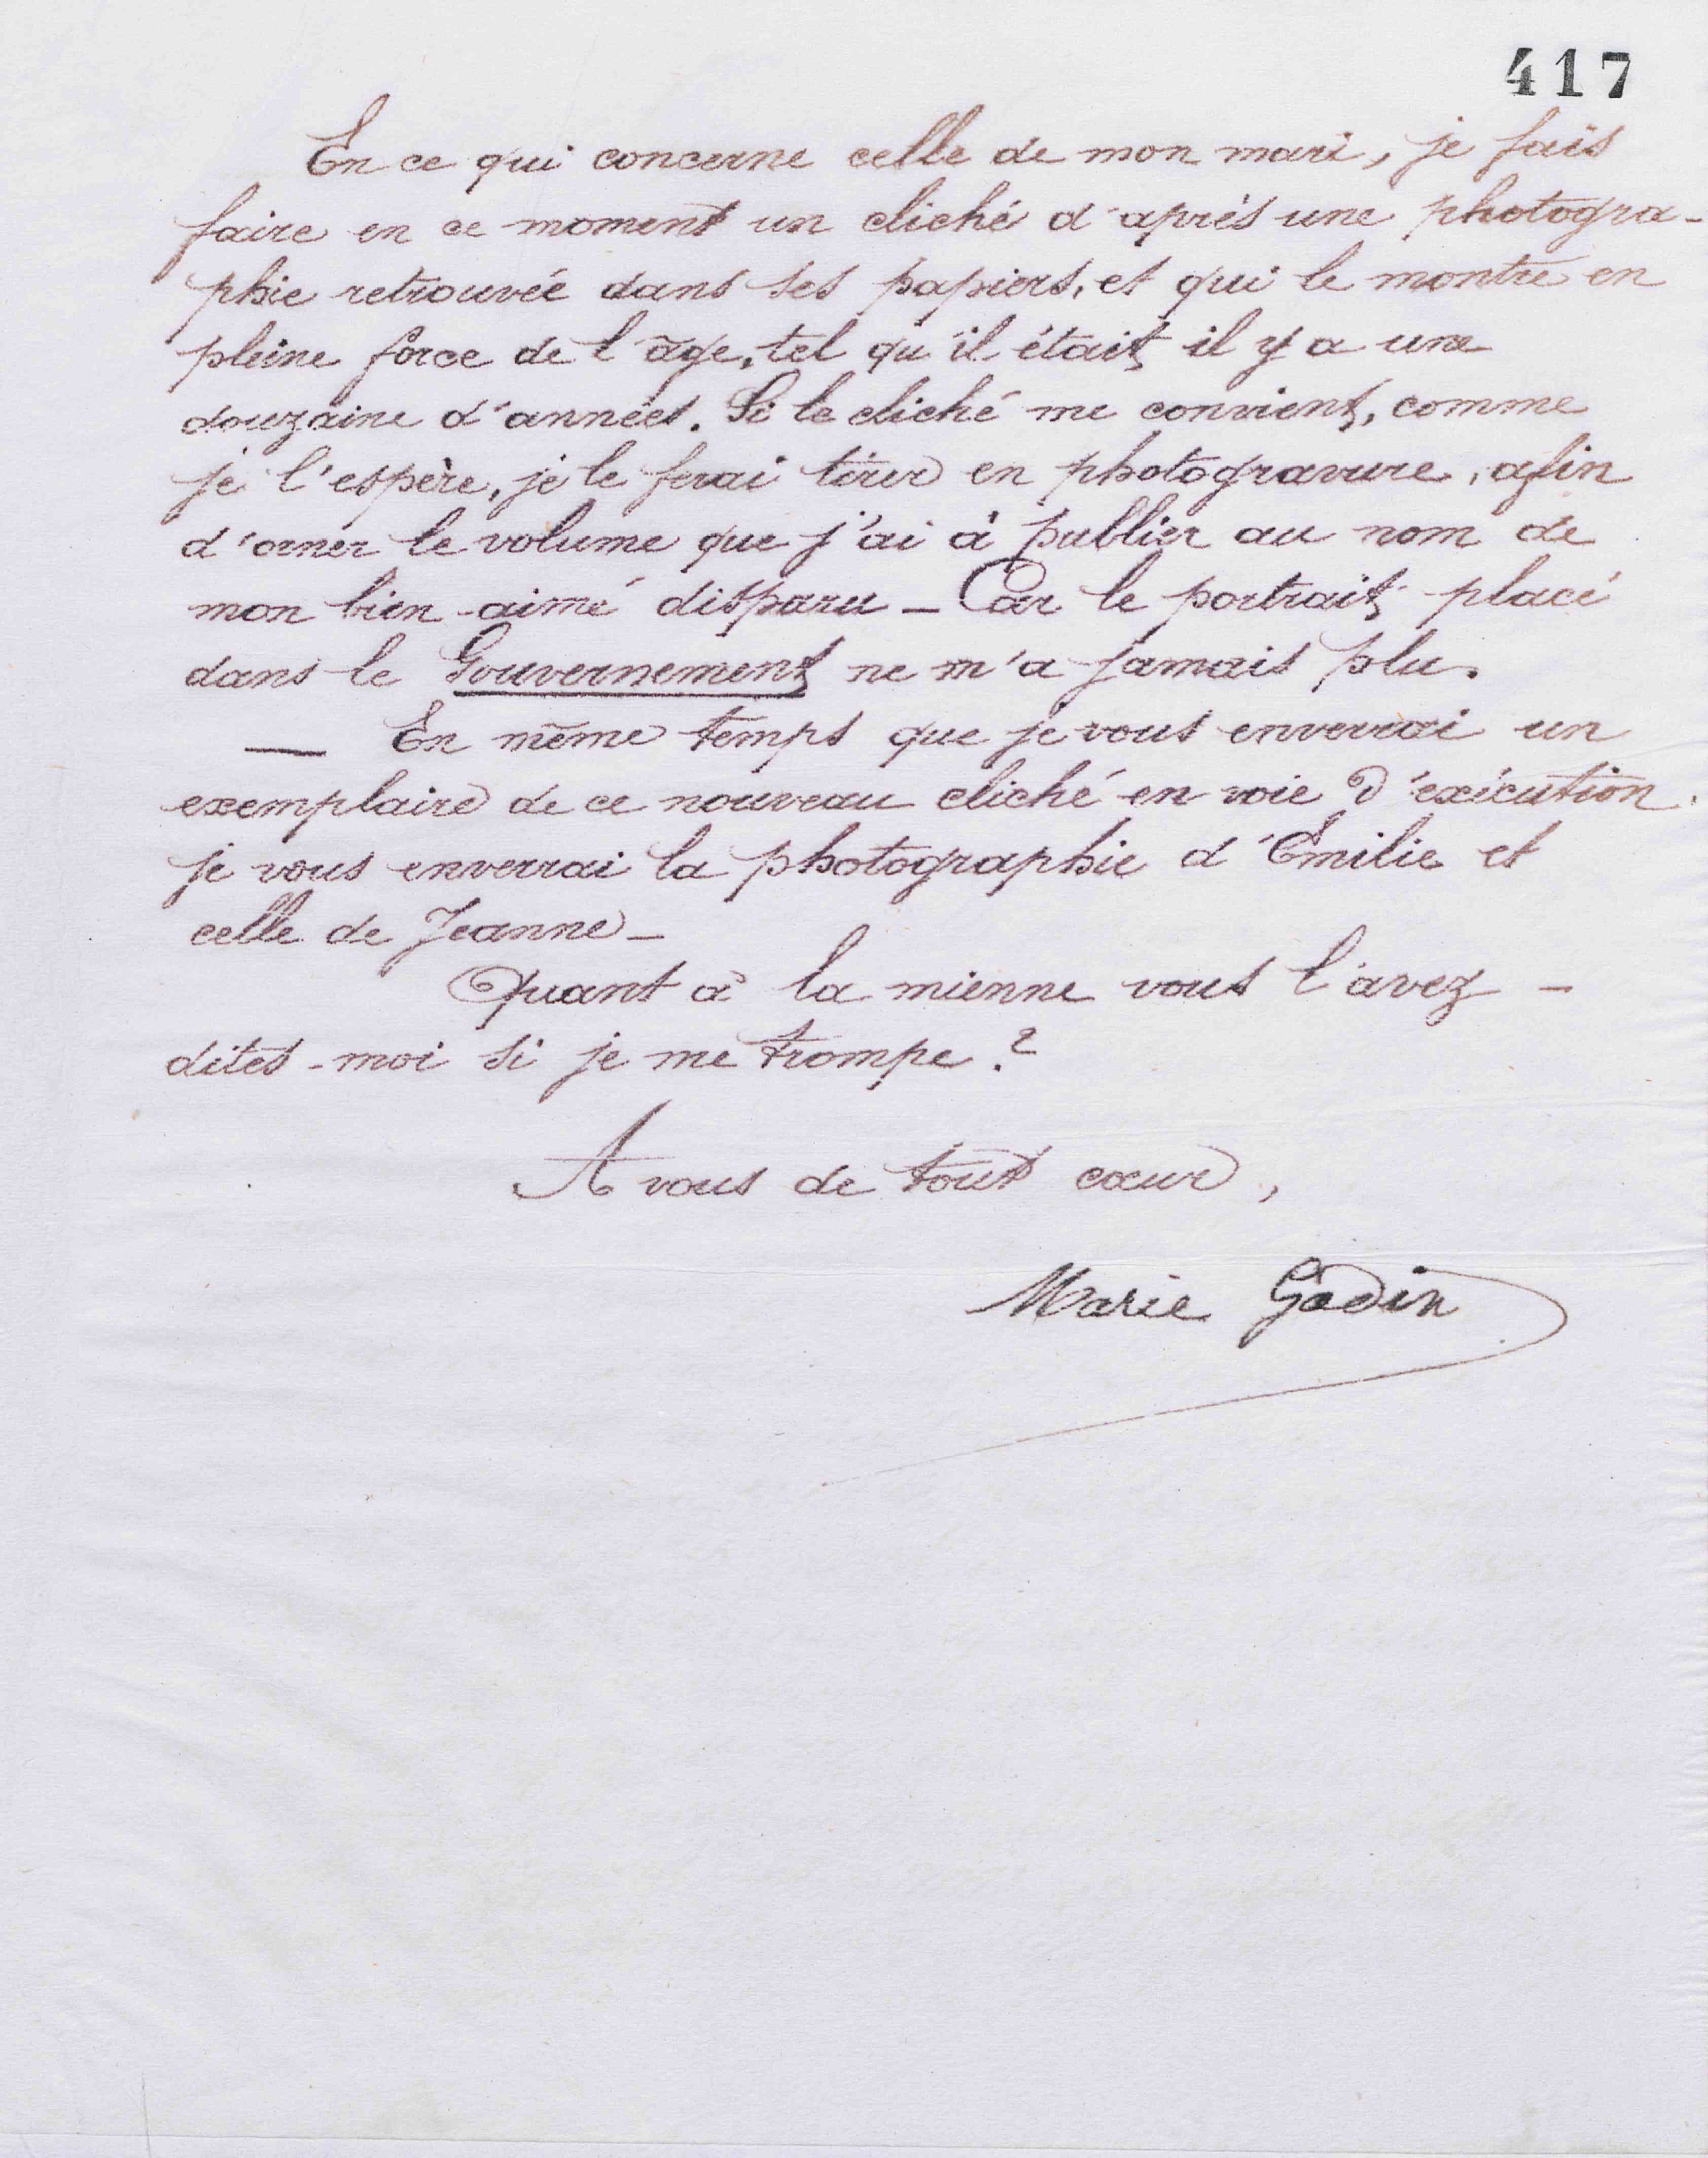 417
En ce qui concerne celle de mon mari, je fais
faire en ce moment un cliché d'après une photogra-
phie retrouvée dans ses papiers, et qui le montre en
pleine force de l'âge, tel qu'il était il y a une
douzaine d'années. Si le cliché me convient, comme
je l'espère, je le ferai tirer en photogravure, afin
d'orner le volume que j'ai à publier au nom de
mon bien-aimé disparu - Car le portrait placé
dans le Gouvernement ne m'a jamais plu.
— En même temps que je vous enverrai un
exemplaire de ce nouveau cliché en voie d'exécution.
je vous enverrai la photographie d'Emilie et
celle de Jeanne -
Quant à la mienne vous l'avez -
dites-moi si je me trompe ?
A vous de tout cœur,
Marie Godin